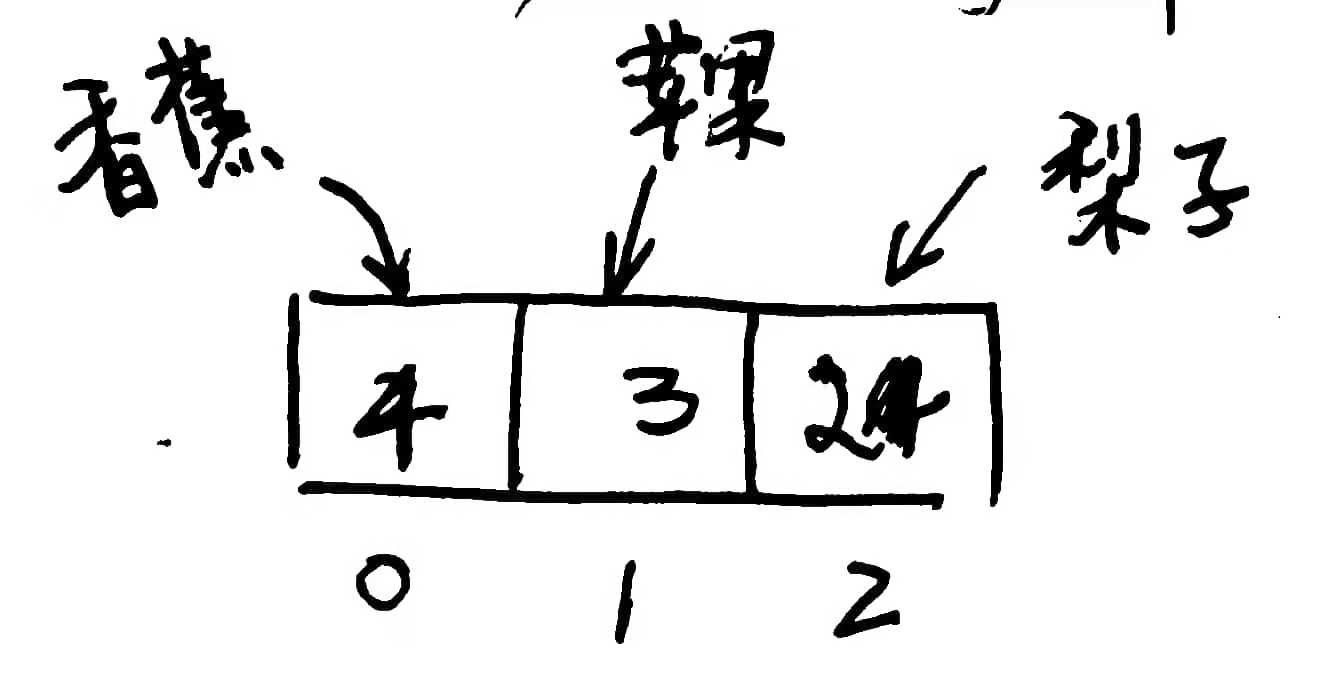 香蕉 苹果 梨子
4 3 2
0 1 2